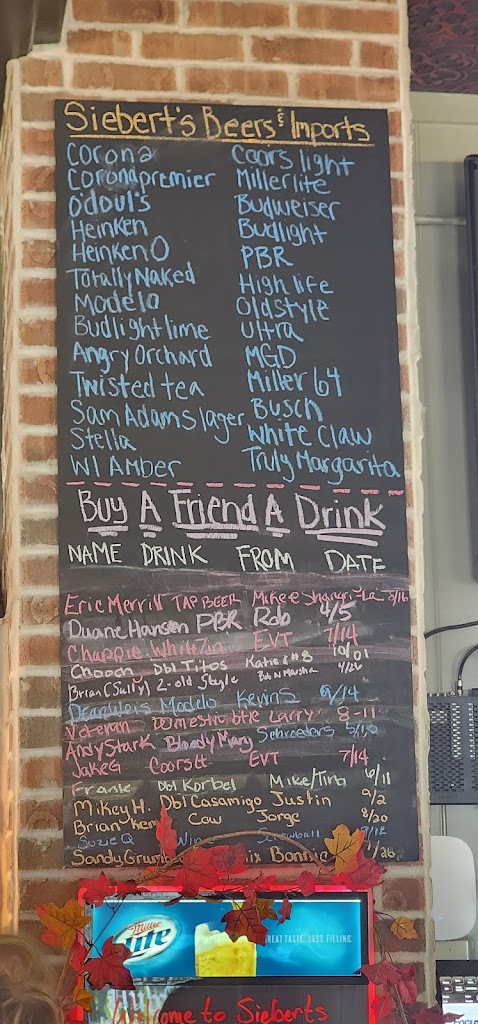 Siebert's Beers & Imports
Corona Coors light
Corona premier Miller lite
O'doul's Budweiser
Heinken Budlight
Heinken O PBR
Totally Naked High life
Modelo Old style
Budlight lime Ultra
Angry Orchard MGD
Twisted tea Miller 64
Sam Adams lager Busch
Stella White Claw
WI Amber Truly Margarita
Buy A Friend A Drink
NAME DRINK FROM DATE
Eric Merrill TAP BEER Mike @ Shangri-La 8/16
Duane Hansen PBR Rob 4/5
Chappie Whit Zin EVT 7/14
Chooch Dbl Titos Katie & #8 10/01
Brian (Sully) 2-old Style Bob N Marsha 4/26
Modelo Kevin S 9/14
Veteran Domestic btle Larry 8-11
Andy Stark Bloody Mary Schroeders
Jake G Coors Lt EVT 7/14
Frank Dbl Korbel Mike/Tina 6/11
Mikey H. Dbl Casamigo Justin 9/2
Brian Caw Jorge 8/20
Suzie Q Screwball
Sandy Bonnie
Miller
Lite
GREAT TASTE. LESS FILLING.
Welcome to Sieberts